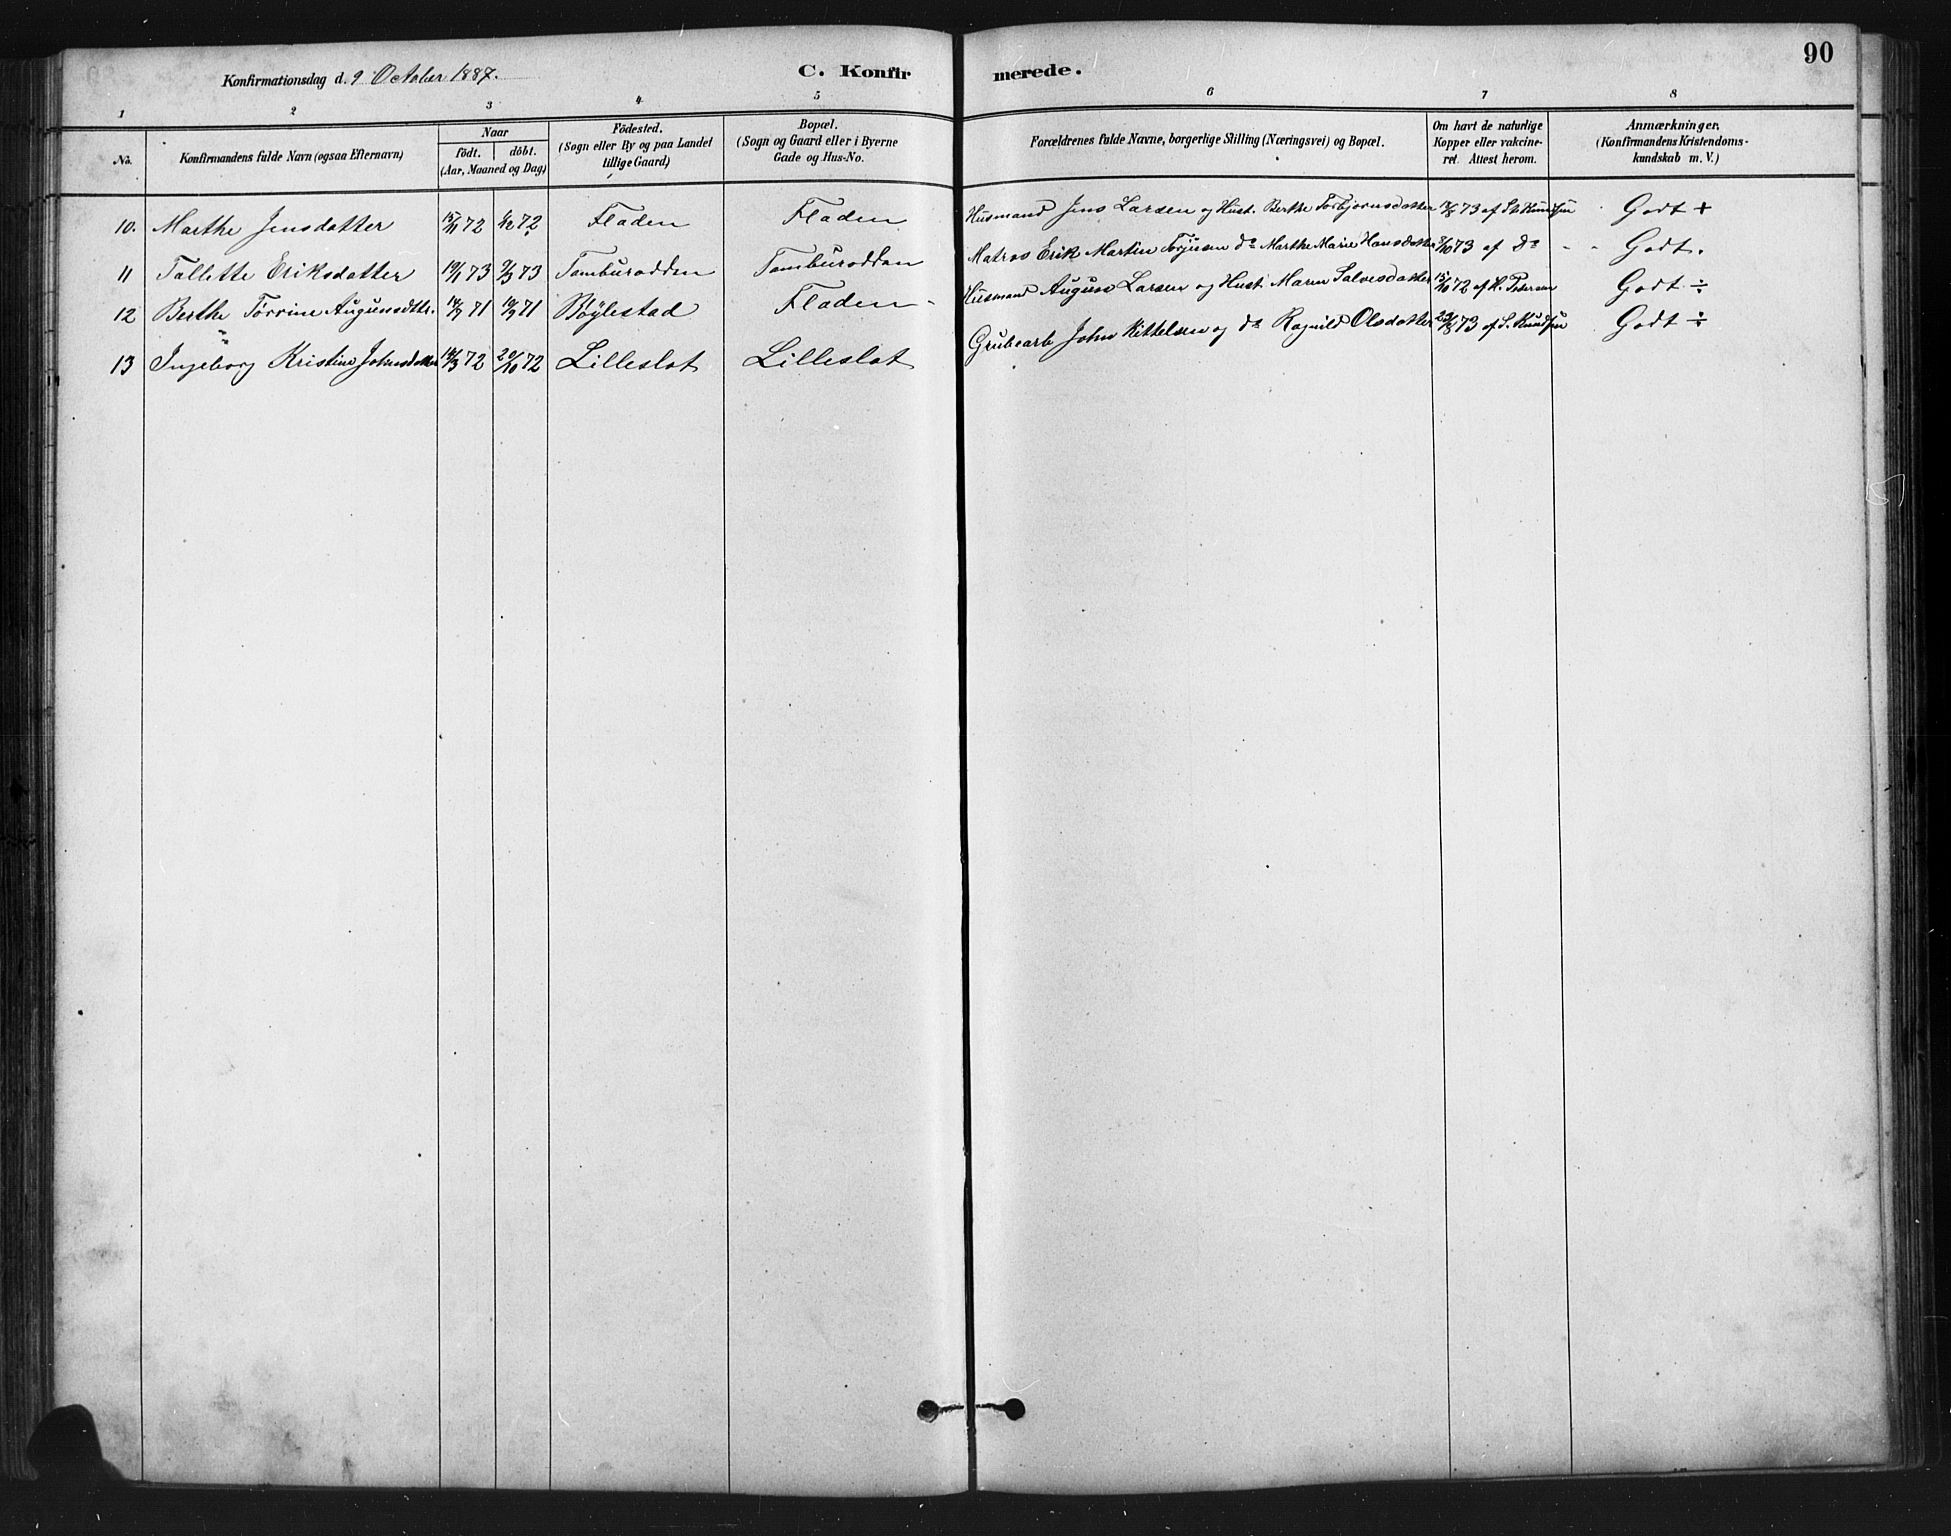 Konfirmationsdag d. 9 October 1887. C. Konfirmerede. 90
1 2 3 4 5 6 7 8
No. Konfirmandens fulde Navn (ogsaa Efternavn) Naar födt. döbt. (Aar, Maaned og Dag) Födested. (Sogn eller By og paa Landet tillige Gaard) Bopæl. (Sogn og Gaard eller i Byerne Gade og Hus-No. Forældrenes fulde Navne, borgerlige Stilling (Næringsvei) og Bopæl. Om havt de naturlige Kopper eller vakcineret. Attest herom. Anmærkninger. (Konfirmandens Kristendomskundskab m. V.)
10. Marthe Jensdatter 15/11 72 72 Fladen Fladen Husmand Jens Larsen og Hust. Berthe Torbjornsdatter 73 af Godt +
11 Tallette Eriksdatter 19/1 73 9/3 73 Tamburodden Tamburodden Matros Erik Martin Torjusen do Marthe Marie Hansdatter 73 af Do - - Godt.
12 Berthe Törrine Augunsdtter. 71 71 Böylestad Fladen - Husmand Augun Larsen og Hust Maren Salvesdatter 15/10 72 af H. Pedersen Godt ÷
13 Ingeborg Kristine Johnsdatter 72 20/10 72 Lilleslot Lilleslot Grubearb John Kittelsen og do Ragnild Olsdatter 73 af S. Knudsen Godt ÷